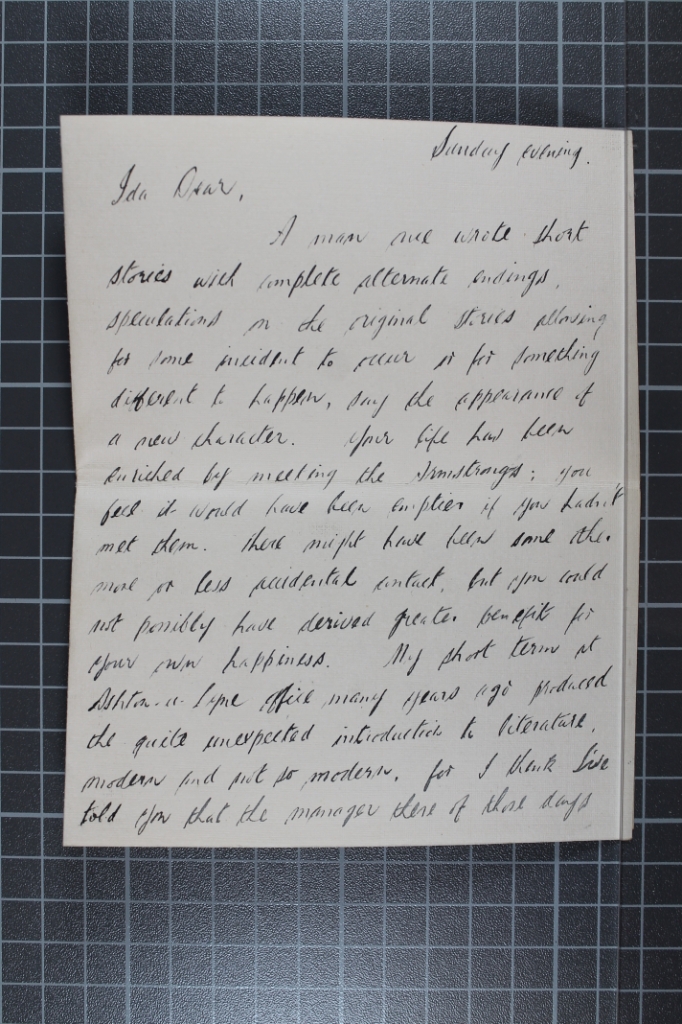 Sunday evening.
Ida Dear,
A man once wrote short
stories with complete alternate endings,
speculations on the original stories allowing
for some incident to occur or for something
different to happen, say the appearance of
a new character. Your life has been
enriched by meeting the Armstrongs; you
feel it would have been emptier if you hadn't
met them. There might have been some other
more or less accidental contact, but you could
not possibly have derived greater benefit for
your own happiness. My short term at
Ashton-u-Lyne office many years ago produced
the quite unexpected introduction to literature,
modern and not so modern, for I think I've
told you that the manager there of those days